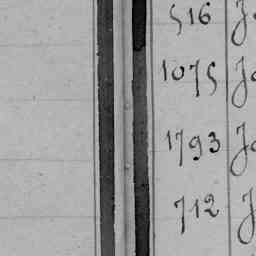 516 J
1075 J
1793 J
712 J